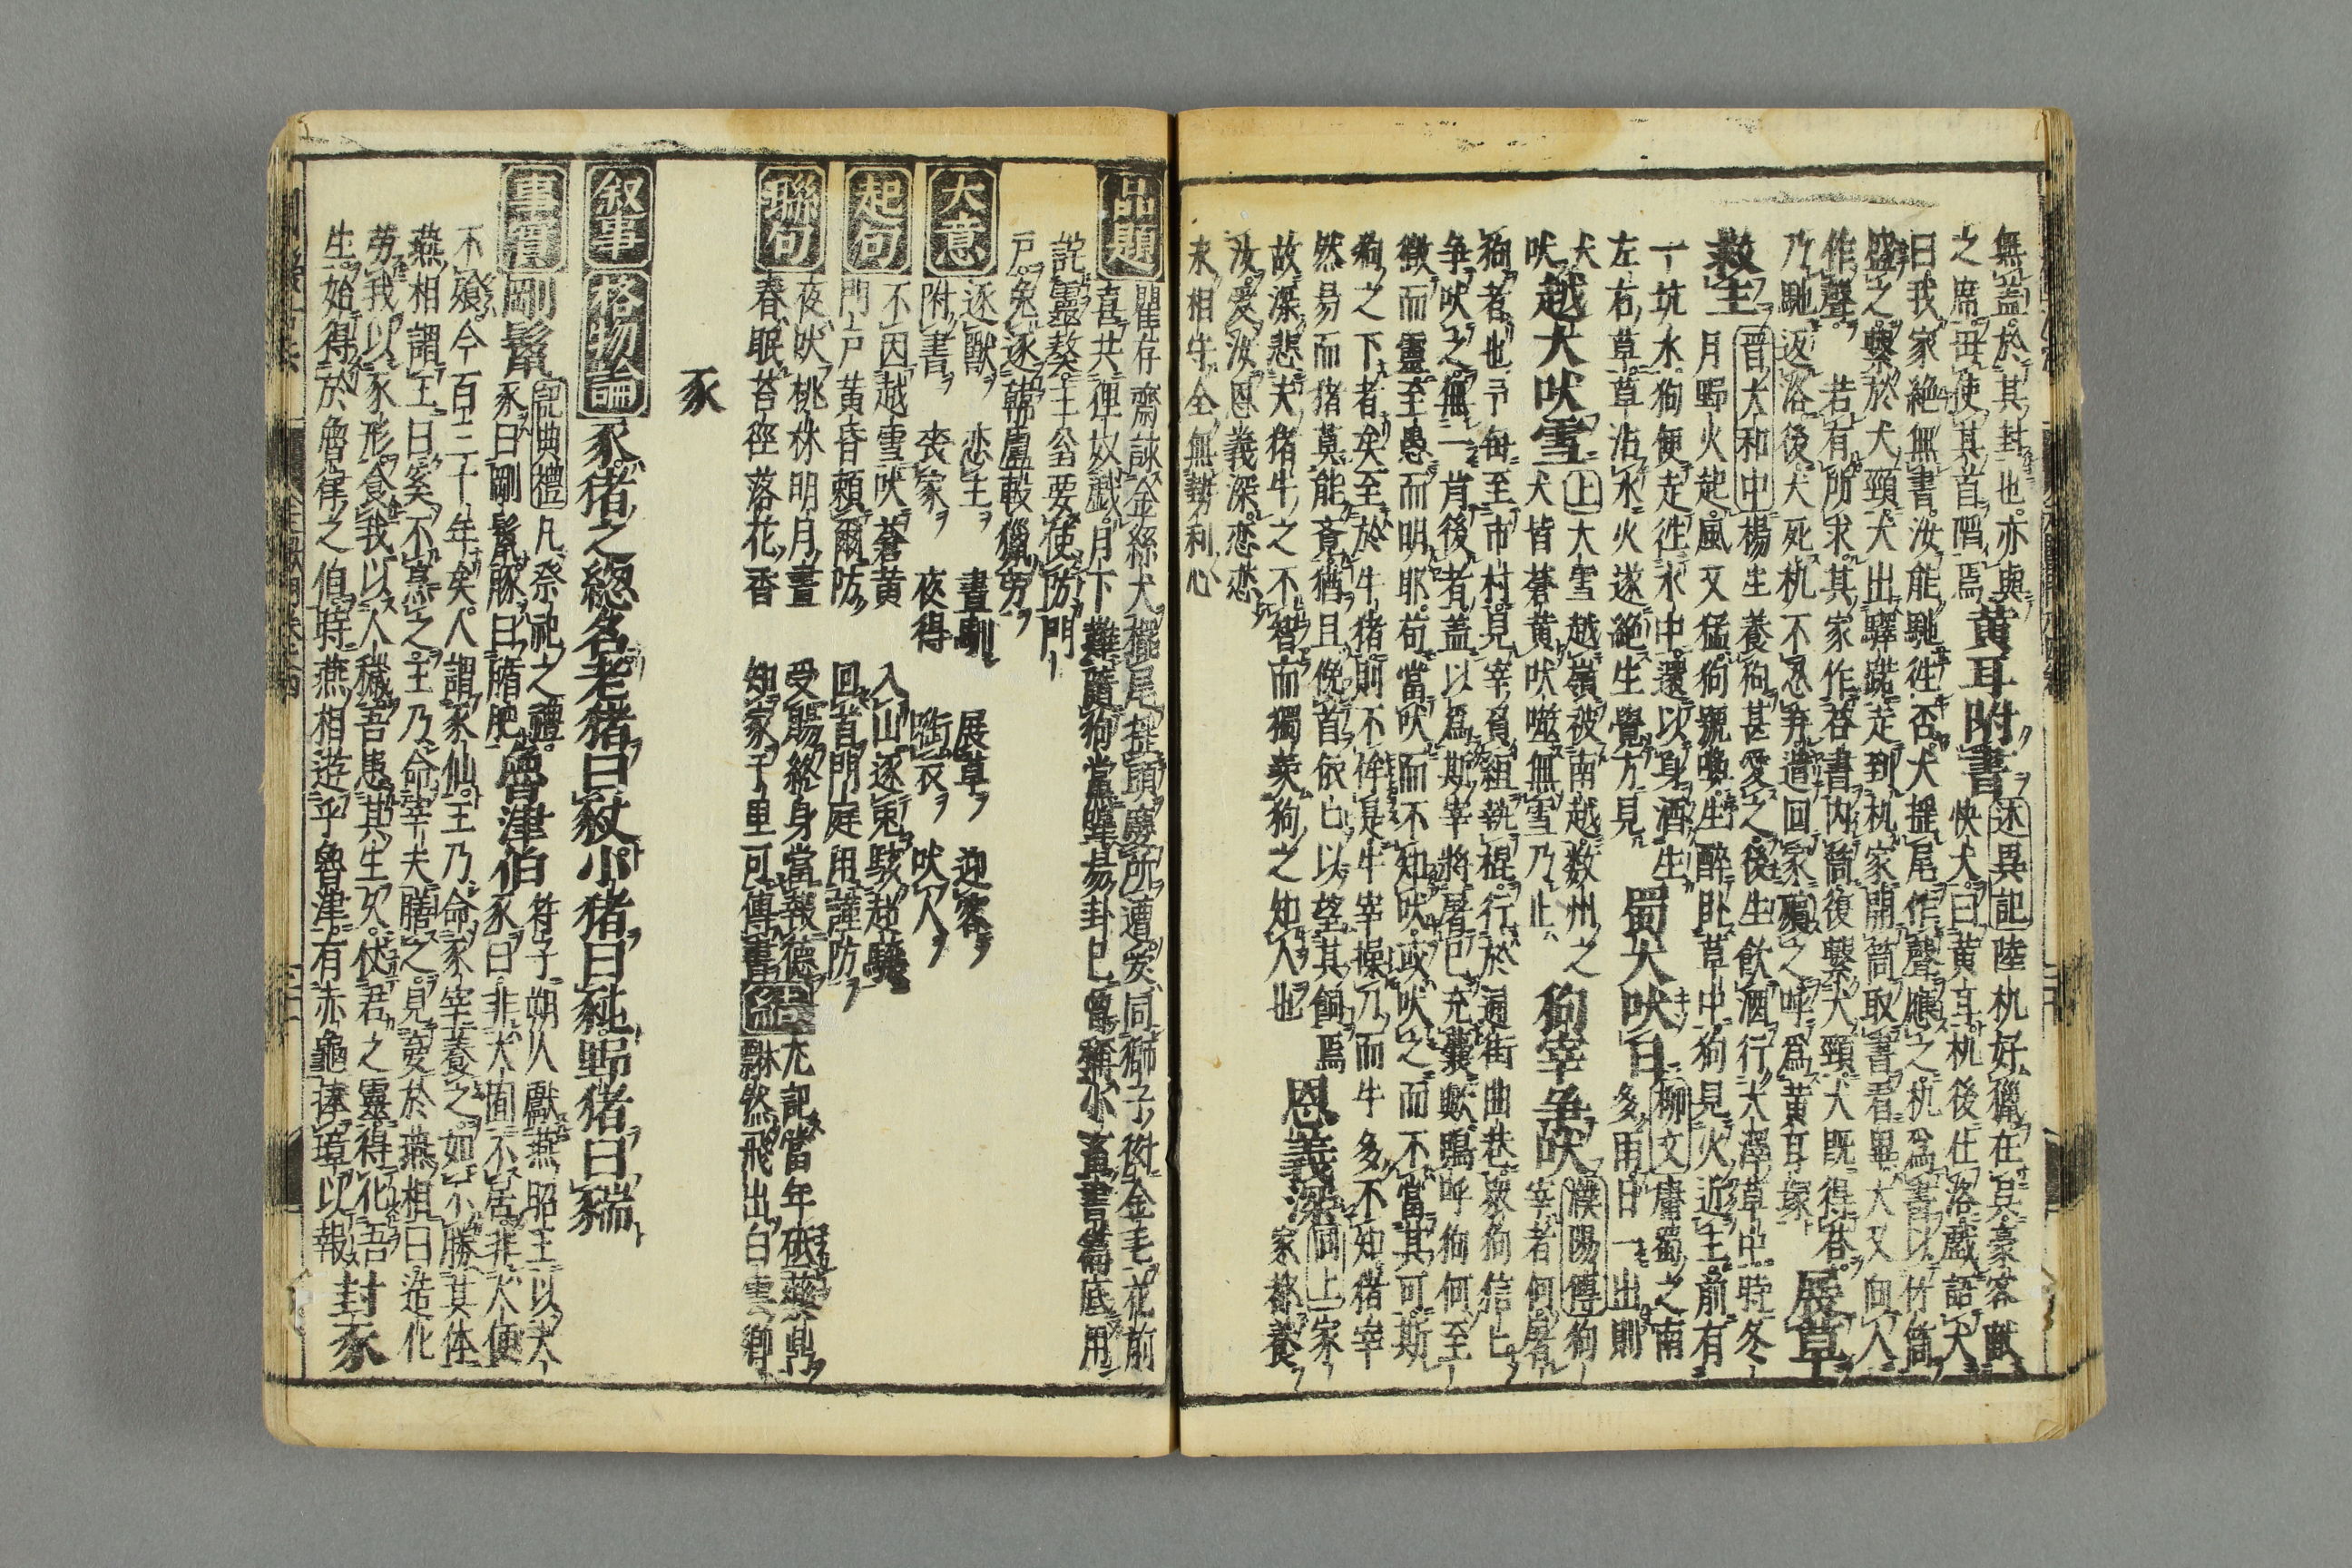 無蓋於其封也亦與
之席毋使其首陷焉黃耳附書述異記陸机好獵在吳豪客獻
快犬曰黃耳机後仕洛戲語犬
曰我家絕無書汝能馳往否犬搖尾作聲應之机為書以竹筒
盛之繫於犬頸犬出驛路走到机家開筒取書看畢犬又向人
作聲若有所求其家作答書内筒復繫犬頸犬既得答
乃馳返洛後犬死机不忍弃遣回家殯之呼為黃耳塚展草
救主晉太和中楊生養狗甚愛之後生飲酒行大澤草中時冬
月野火起風又猛狗號喚生醉卧草中狗見火近主前有
一坑水狗便走往水中還以身洒生
左右草草沾水火遂絕生覺方見蜀犬吠日柳文庸蜀之南
多雨日一出則
犬吠越犬吠雪上大雪越嶺被南越数州之
犬皆蒼黃吠噬無雪乃止狗宰爭吠濮陽傳狗
宰者何屠
狗者也予每至市村見宰負紐執棍行於通街曲巷衆狗信信
争吠之無一肯後者蓋以為斯宰將屠巳充囊歟嗚呼狗何至
微而靈至愚而明耶苟當吠而不知吠或吠之而不當其可斯
狗之下者矣至於牛猪則不侔是牛宰操刀而牛多不知猪宰
然易而猪莫能奔猶且俛首依亡以望其飼焉恩義深同上家
家都養
故深悲夫猪牛之不智而獨羨狗之知人也
汝愛汝恩義深恋恋
未相牛全無勢利心
品題 瞿存齋詠金絲犬擺尾揺頭慶所遭㷼同獅子衒金毛花前
喜共狸奴戯月下難隨狗黨嘷易卦巳曽稱小畜書篇底用
詫靈獒主翁要使防門
戸兔逐韓盧較獵労
大意 逐獸 恋主 晝馴 展草 迎客
附書 喪家 夜得 啣衣 吠人
起句 不因越雪吠蒼黃 入山逐兔駭超驤
門戸黃昏頼爾防 回首門庭用謹防
聯句 夜吠桃林明月晝 受賜終身當報德
春眠苔徑落花香 知家千里可傳書
盖 尤記當年砥藥鼎
飄然飛出白雲鄉
豕
叙事 格物論 豕猪之総名老猪曰豭小猪曰豘野猪曰豵
事實 剛鬣記典禮凡祭祀之禮
豕曰剛鬣豚曰腯肥魯津伯符子朔人獻燕昭王以大
豕曰非大圊不居非人便
不飧今百二十年矣人謂豕仙王乃命豕宰養之如小勝其体
燕相謂王曰奚不烹之王乃命宰夫膳之見夢於燕相曰造化
勞我以豕形食我以人穢吾患其生久伏君之靈得化吾
生始得於魯津之伯時燕相遊乎魯津有赤龜捧璋以報封豕